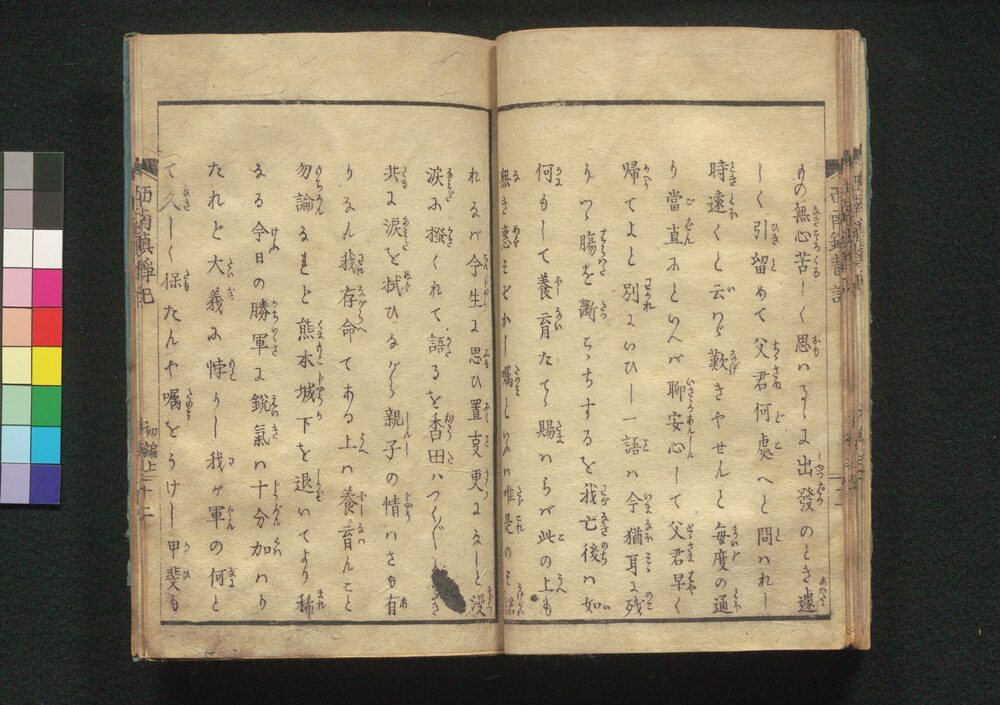 もの無心苦しく思ひゐしに出發のとき遽
しく引留めて父君何處へと問はれし
時遠くと云はゞ歎きやせんと毎度の通
り當直にといへば聊安心して父君早く
帰てよと別にいひし一語は今猶耳に残
り腸を斷ちするを我亡後は如
何もして養育たて賜はらば此の上も
無き惠みぞかし囑といふは唯是のみ諾
れるが今生に思ひ置更になしと漫
涙に掻くれて語るを香田はつく〴〵
共に涙を拭ひながら親子の情はさも有
りなん我存命てある上は養育んこと
勿論なれど熊本城下を退いてより稀
なる今日の勝軍に鋭氣は十分加はり
たれど大義に悖りし我が軍の何と
て久しく保たんや囑をうけし甲斐も
西南鎮静記
初編上 十二